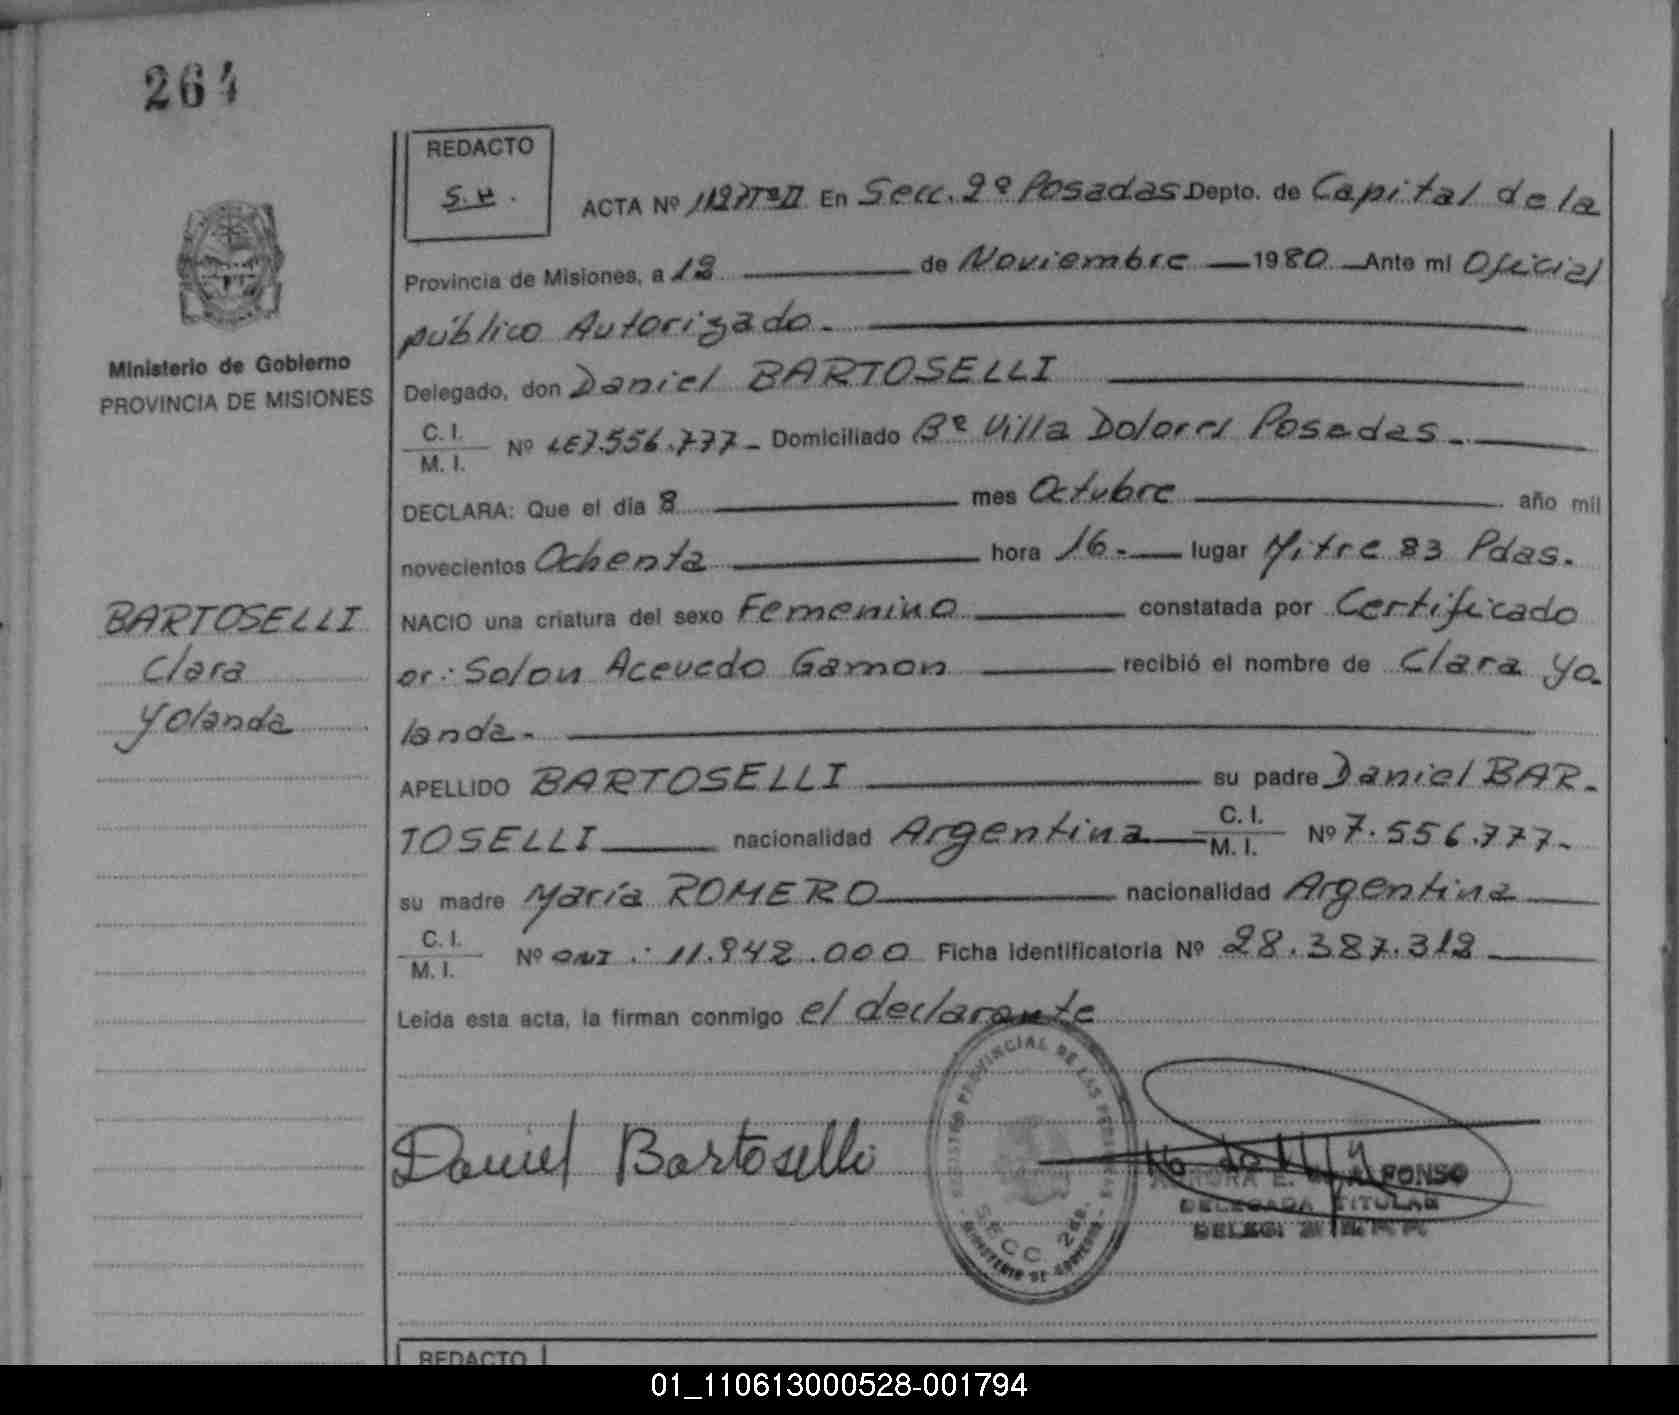 264
REDACTO
ACTA Nº 1127 Tº II En Secc. 2º Posadas Depto. de Capital de la
Provincia de Misiones, a 12 de Noviembre 1980 Ante mi Oficial
público Autorizado.
Ministerio de Gobierno
PROVINCIA DE MISIONES
Delegado, don Daniel BARTOSELLI
C. I.
M. I. Nº LE 7.556.777- Domiciliado Bº Villa Dolores Posadas.
DECLARA: Que el día 8 mes Octubre año mil
novecientos Ochenta hora 16.- lugar Mitre 83 Pdas.
BARTOSELLI
Clara
Yolanda
NACIO una criatura del sexo Femenino constatada por Certificado
Dr: Solon Acevedo Gamon recibió el nombre de Clara Yo-
landa.
APELLIDO BARTOSELLI su padre Daniel BAR-
TOSELLI nacionalidad Argentina C. I. M. I. Nº 7.556.777-
su madre María ROMERO nacionalidad Argentina
C. I.
M. I. Nº DNI: 11.942.000 Ficha identificatoria Nº 28.387.312
Leída esta acta, la firman conmigo el declarante
Daniel Bartoselli
REGISTRO PROVINCIAL DE LAS PERSONAS
SECC. 2da.
MINISTERIO DE GOBIERNO
AURORA E. ALFONSO
DELEGADA TITULAR
REDACTO
01_110613000528-001794